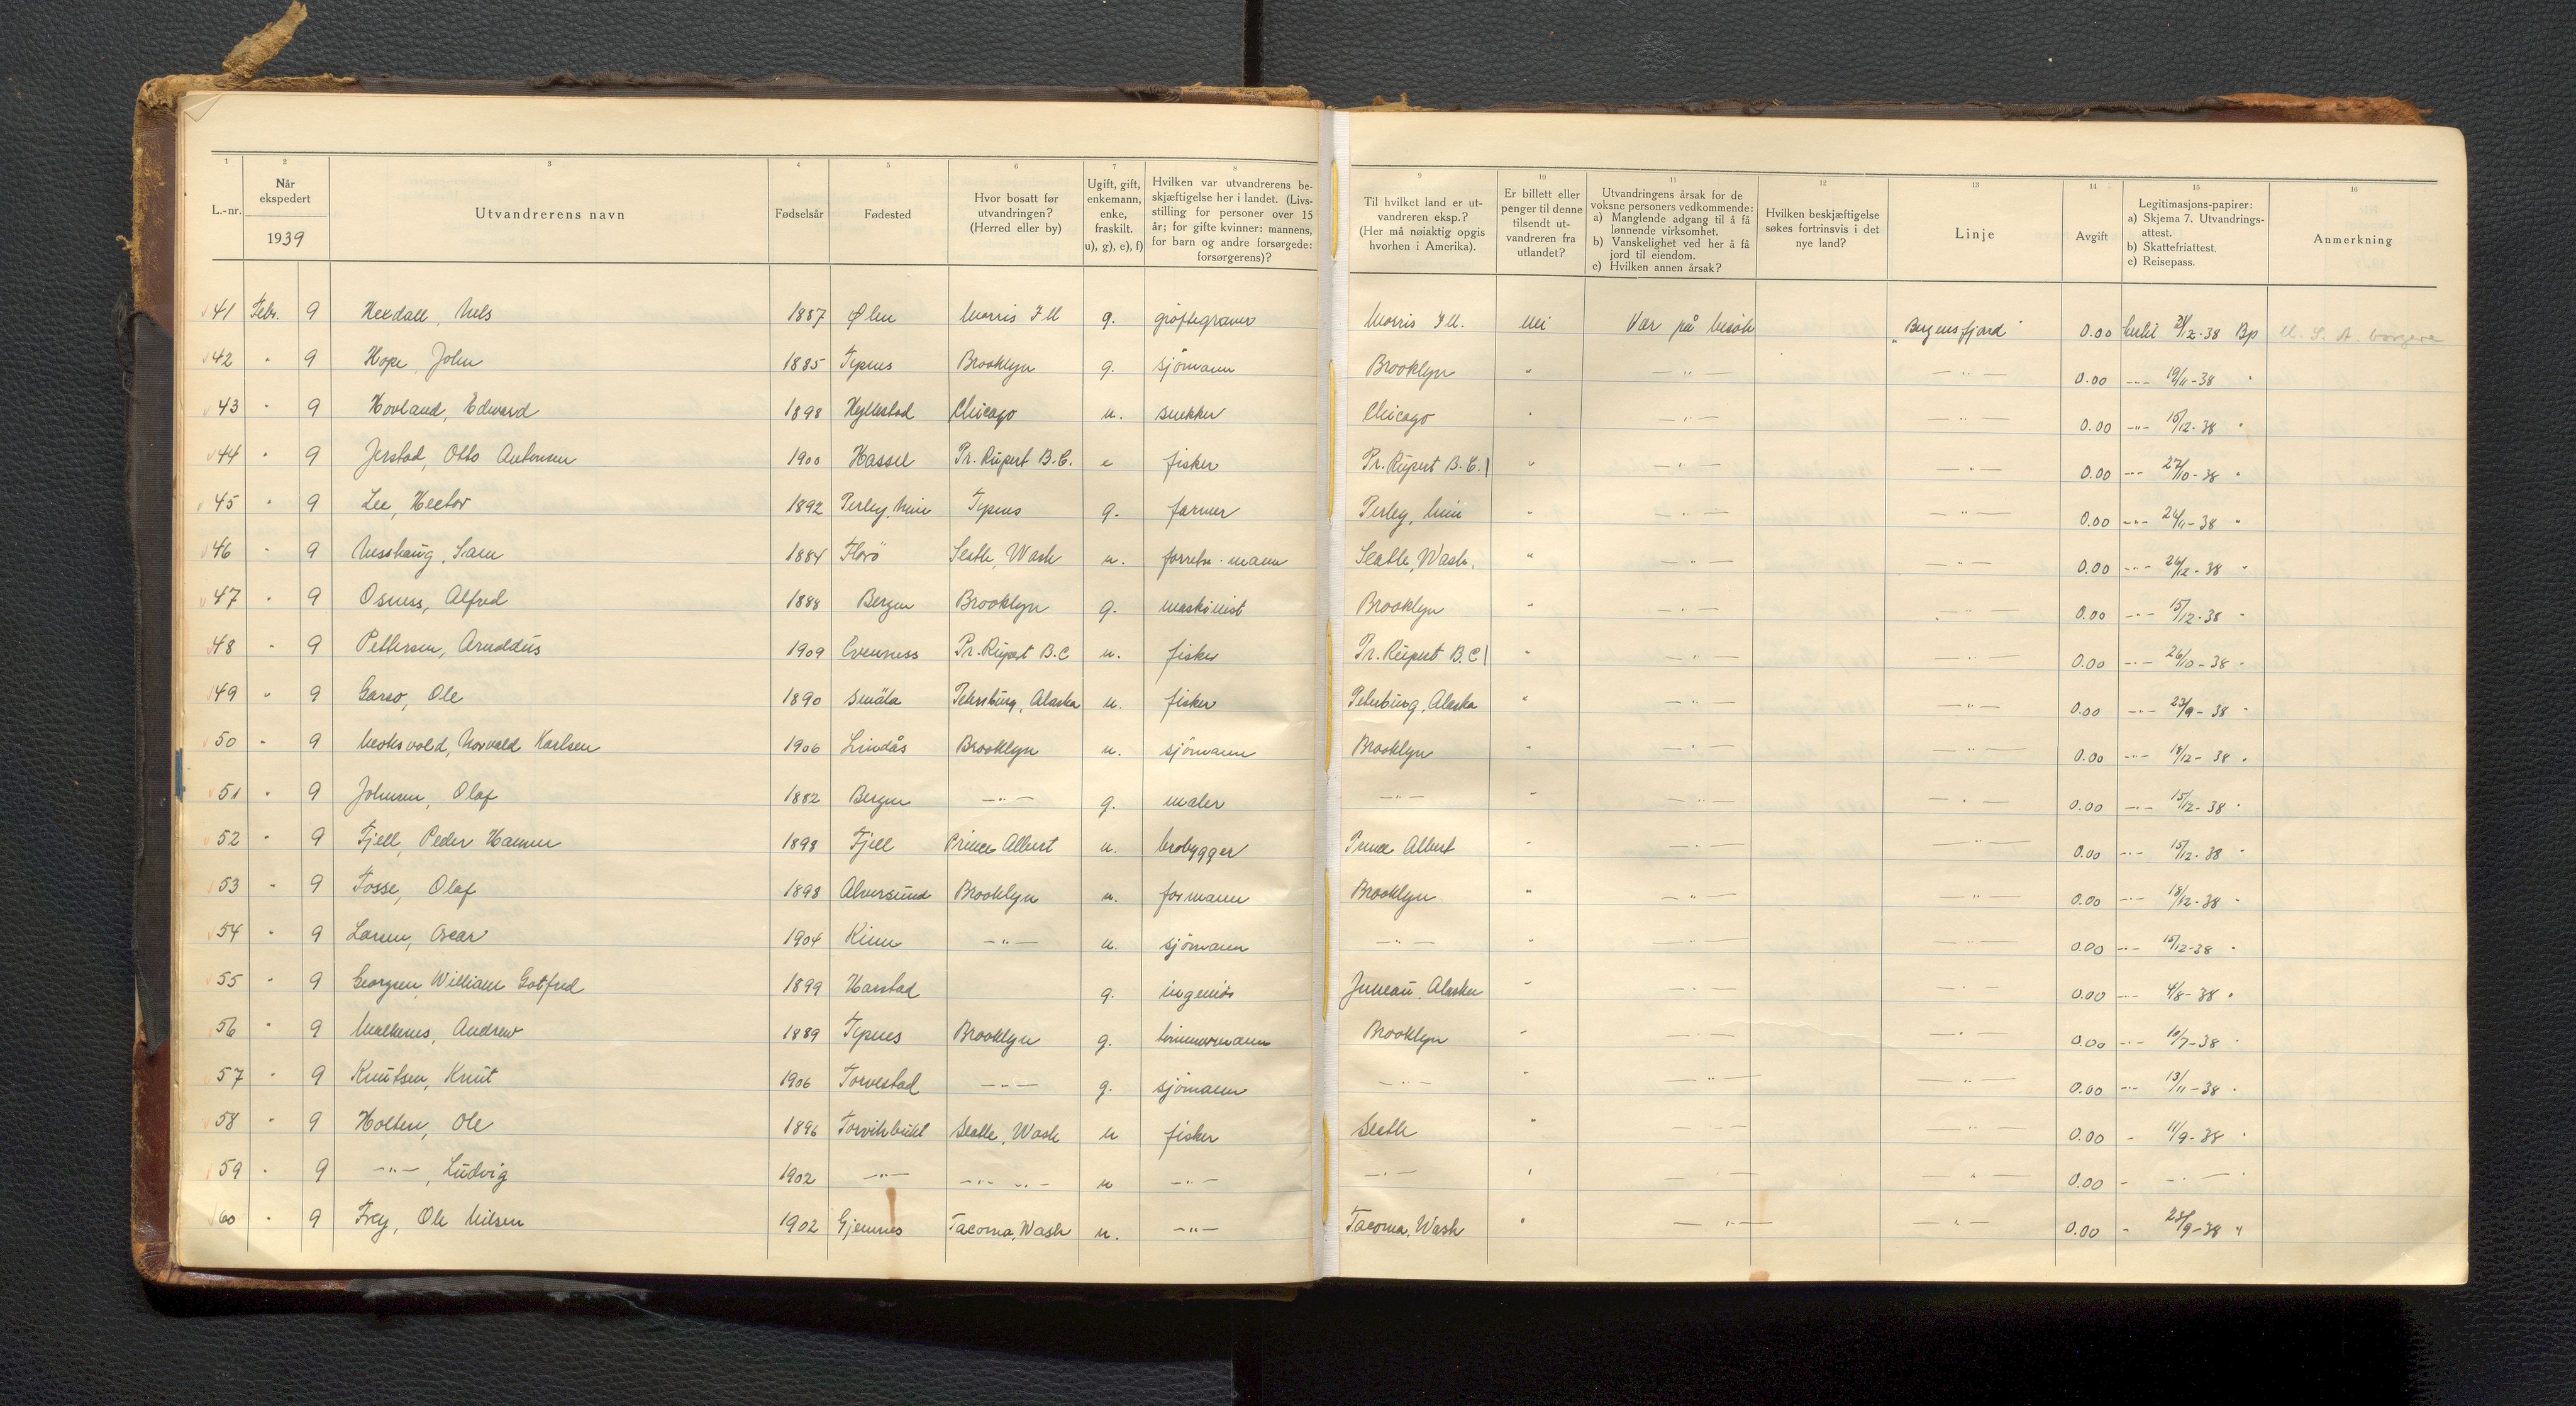 1 2 3 4 5 6 7 8 9 10 11 12 13 14 15 16
L.-nr. Når ekspedert 1939 Utvandrerens navn Fødselsår Fødested Hvor bosatt før utvandringen? (Herred eller by) Ugift, gift, enkemann, enke, fraskilt. u), g), e), f) Hvilken var utvandrerens beskjæftigelse her i landet. (Livsstilling for personer over 15 år; for gifte kvinner: mannens, for barn og andre forsørgede: forsørgerens)? Til hvilket land er utvandreren eksp.? (Her må nøiaktig opgis hvorhen i Amerika). Er billett eller penger til denne tilsendt utvandreren fra utlandet? Utvandringens årsak for de voksne personers vedkommende: a) Manglende adgang til å få lønnende virksomhet. b) Vanskelighet ved her å få jord til eiendom. c) Hvilken annen årsak? Hvilken beskjæftigelse søkes fortrinsvis i det nye land? Linje Avgift Legitimasjons-papirer: a) Skjema 7. Utvandringsattest. b) Skattefriattest. c) Reisepass. Anmerkning
41 Febr. 9 Hexdall, Nels 1887 Ølen Morris Ill g. grøftegraver Morris Ill. nei Vær på besøk "Bergensfjord" 0.00 12-38 Bp U. S. A. borgere
42 " 9 Hope, John 1885 Fysnes Brooklyn g. sjömann Brooklyn " —"— —"— 0.00 —"— 19/11-38 "
43 " 9 Hovland, Edward 1898 Hyllestad Chicago u. snekker Chicago " —"— —"— 0.00 —"— 15/12-38 "
44 " 9 Jerstad, Otto Antonsen 1900 Hassel Pr. Rupert B.C. e fisker Pr. Rupert B.C. " —"— —"— 0.00 —"— 27/10-38 "
45 " 9 Lee, Hector 1892 Perley, Min Fysnes g. farmer Perley, Min " —"— —"— 0.00 —"— 24/11-38 "
46 " 9 Nesshaug, Sam 1884 Florö Seatle, Wash u. forretn. mann Seatle, Wash. " —"— —"— 0.00 —"— 24/12-38 "
47 " 9 Osness, Alfred 1888 Bergen Brooklyn g. maskinist Brooklyn " —"— —"— 0.00 —"— 15/12-38 "
48 " 9 Pettersen, Arnoldus 1909 Evenness Pr. Rupert B.C u. fisker Pr. Rupert B.C " —"— —"— 0.00 —"— 26/10-38 "
49 " 9 Garso, Ole 1890 Smöla Petersburg, Alaska u. fisker Petersburg, Alaska " —"— —"— 0.00 —"— 23/9-38 "
50 " 9 Norvald Karlsen 1906 Lindås Brooklyn u. sjömann Brooklyn " —"— —"— 0.00 —"— 18/12-38 "
51 " 9 Johnsen, Olaf 1882 Bergen —"— g. maler —"— " —"— —"— 0.00 —"— 15/12-38 "
52 " 9 Fjell, Peder Hansen 1898 Fjell Prince Albert u. brobygger Prince Albert " —"— —"— 0.00 —"— 15/12-38 "
53 " 9 Fosse, Olaf 1898 Alversund Brooklyn u. formann Brooklyn " —"— —"— 0.00 —"— 18/12-38 "
54 " 9 Larsen, Oscar 1904 Kinn —"— u. sjömann —"— " —"— —"— 0.00 —"— 15/12-38 "
55 " 9 Georgsen, William Gotfred 1899 Harstad g. ingeniör Juneau, Alaska " —"— —"— 0.00 —"— 4/8-38 "
56 " 9 Andrew 1889 Fysnes Brooklyn g. tömmermann Brooklyn " —"— —"— 0.00 —"— 10/7-38 "
57 " 9 Knutsen, Knut 1906 Torvestad —"— g. sjömann —"— " —"— —"— 0.00 —"— 13/11-38 "
58 " 9 Holten, Ole 1896 Torvikbukt Seatle, Wash u fisker Seatle " —"— —"— 0.00 " 11/9-38 "
59 " 9 —"—, Ludvig 1902 —"— —"— —"— u —"— —"— " —"— —"— 0.00 " —"— "
60 " 9 Frey, Ole Nilsen 1902 Gjemnes Tacoma, Wash u. —"— Tacoma, Wash " —"— —"— 0.00 " 28/9-38 "